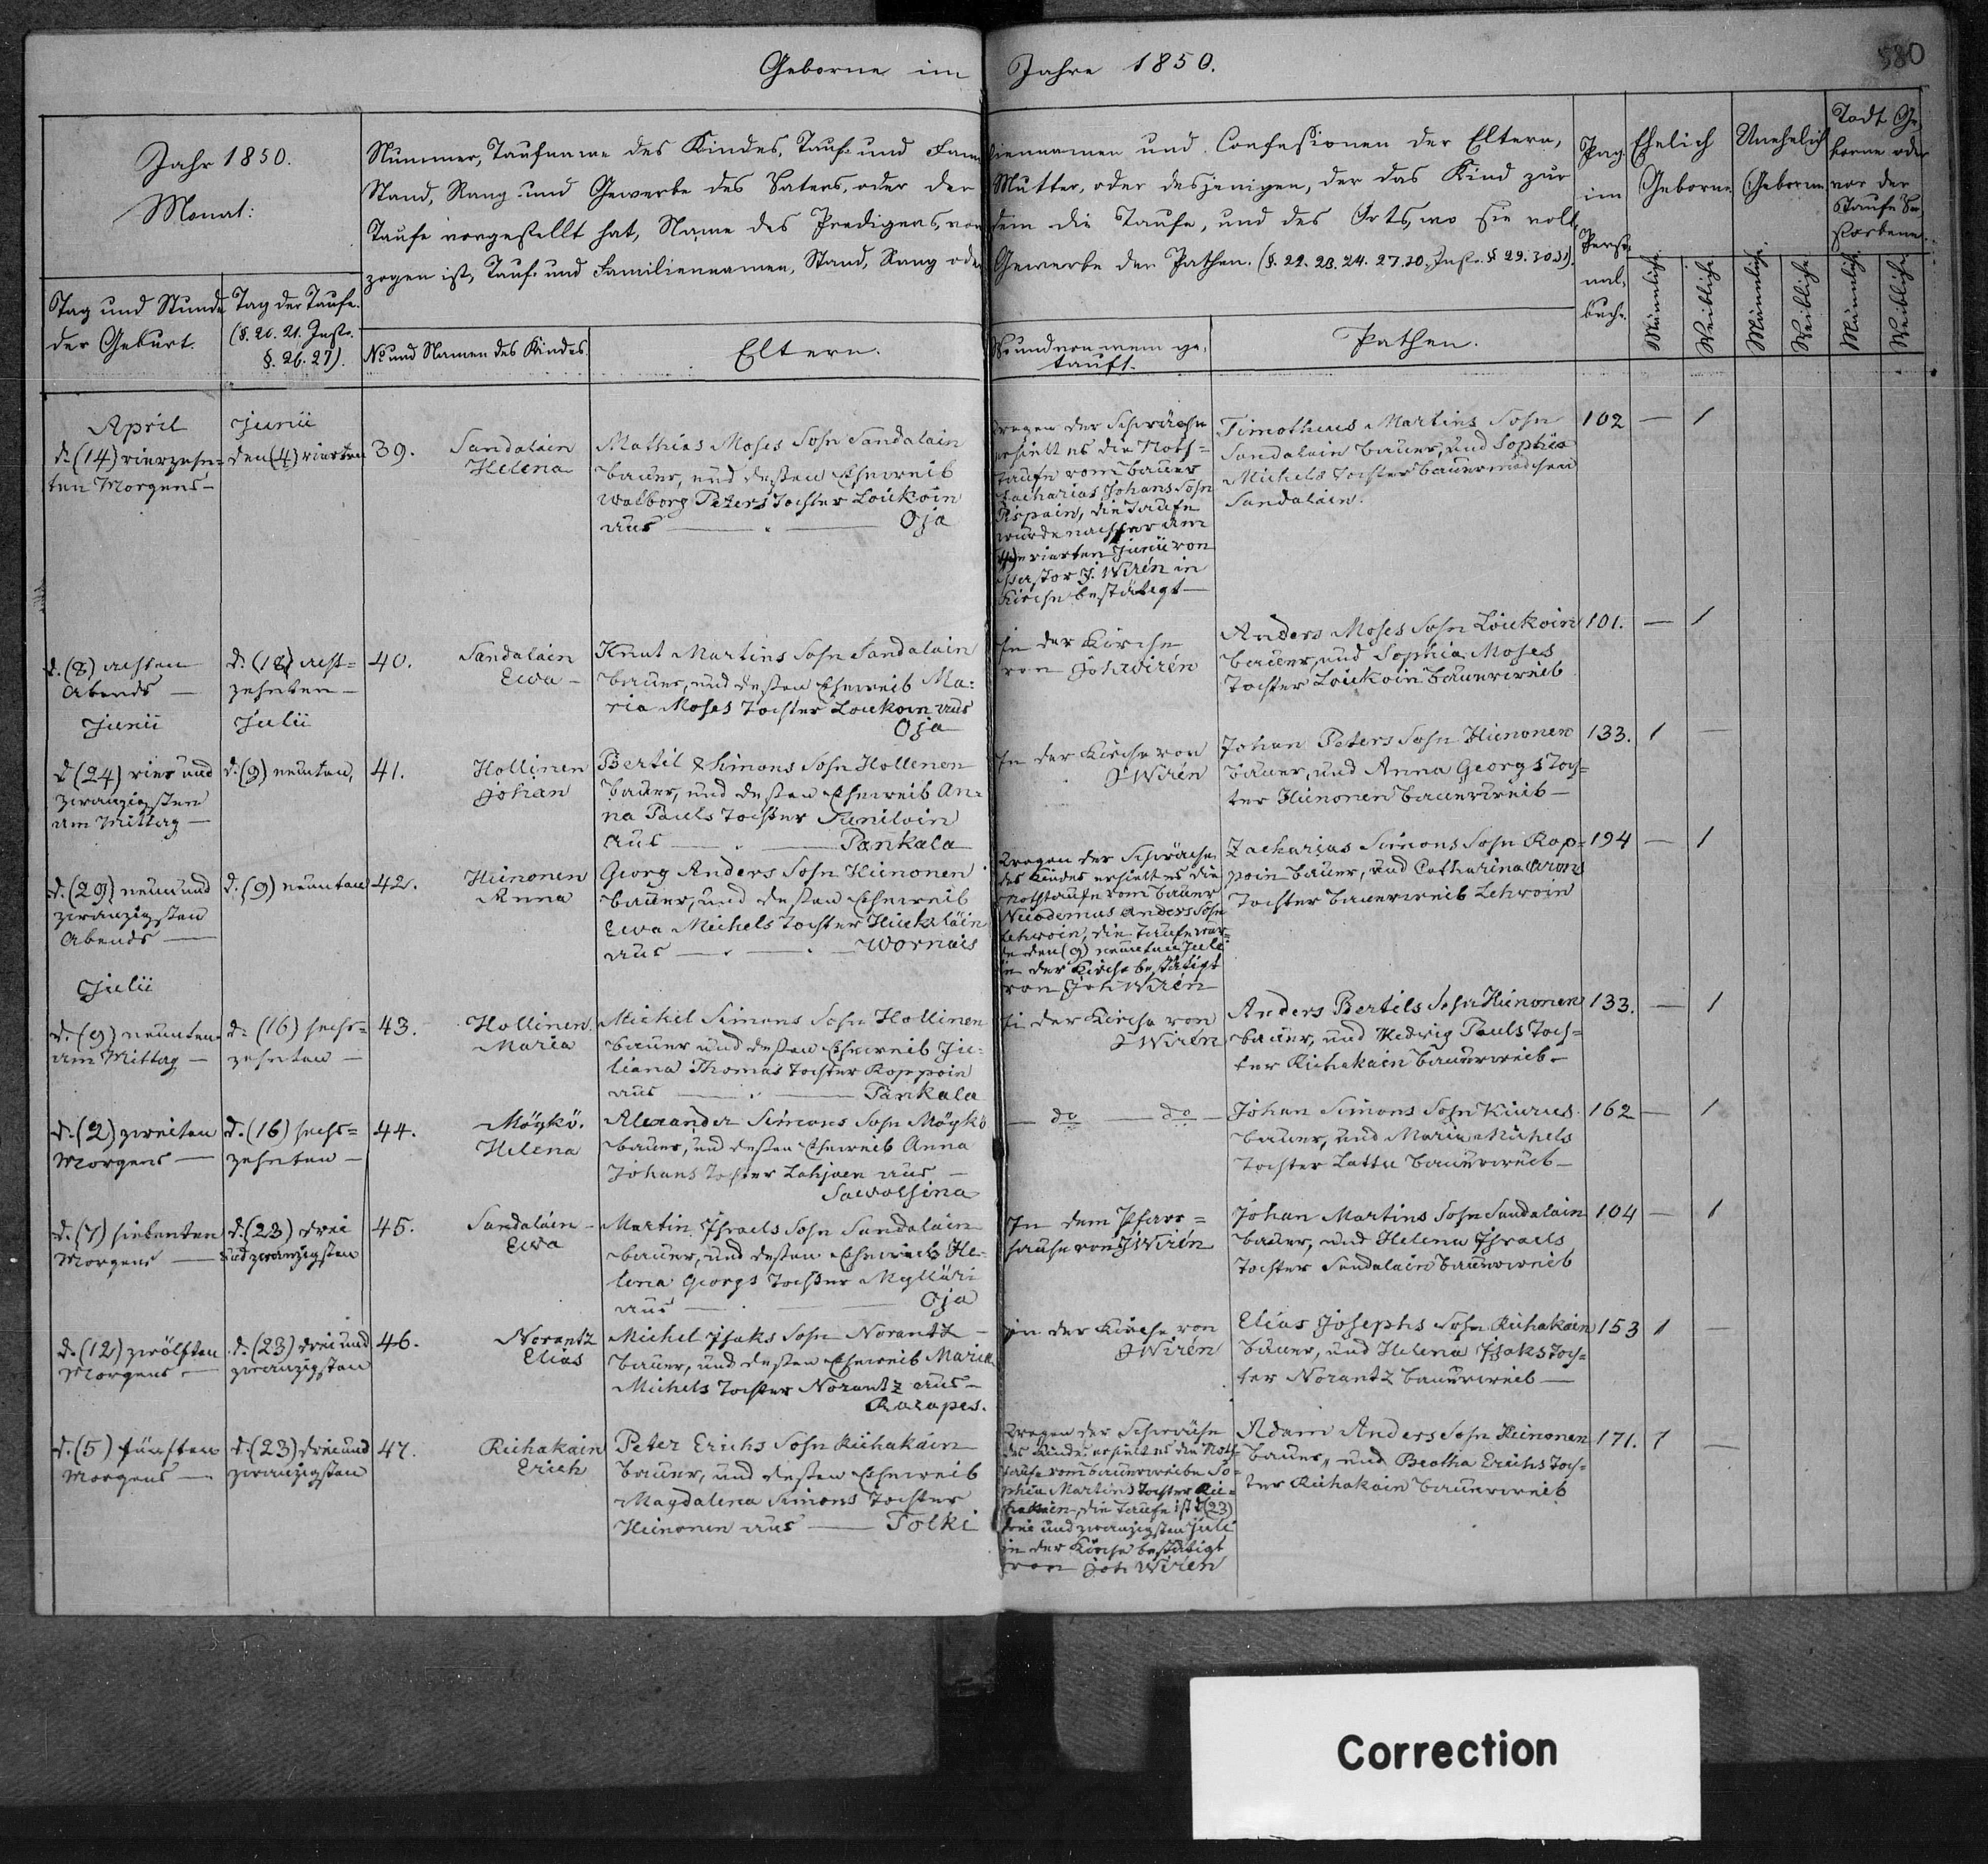 Geborne im Jahre 1850.
580
Jahr 1850.
Monat:
Tag und Stunde
der Geburt.
Tag der Taufe.
(§. 20. 21. Instr.
§. 26. 27).
Nummer, Taufname des Kindes, Tauf- und Familiennamen und Confessionen der Eltern,
Stand, Rang und Gewerbe des Vaters, oder der Mutter, oder desjenigen, der das Kind zur
Taufe vorgestellt hat, Name des Predigers, von dem die Taufe, und des Orts, wo sie voll-
zogen ist, Tauf- und Familiennamen, Stand, Rang oder Gewerbe der Pathen. (§. 22. 23. 24. 27. 30. Instr. § 29. 30. 31).
No und Namen des Kindes.
Eltern.
Wo und von wem ge-
tauft.
Pathen.
Pag.
im
Perso-
nal-
buche.
Ehelich
Geborne
Unehelich
Geborne
Todt Ge-
borne oder
vor der
Taufe Ver-
storbene.
Männliche
Weibliche
Männliche
Weibliche
Männliche
Weibliche
April
d. (14) vierzehn-
ten Morgens —
Junii
den (4) vierten
39.
Sandalain
Helena
Mathias Moses Sohn Sandalain
Bauer, und dessen Eheweib
Walborg Peters Tochter Loukoin
aus — Oja
Wegen der Schwäche
erhielt es die Noth-
taufe vom Bauer
Zacharias Johans Sohn
Pispain, die Taufe
wurde nachher am
(4) vierten Junii von
Pastor J. Wirén in
Kirche bestätigt —
Timotheus Martins Sohn
Sandalain Bauer, und Sophia
Michels Tochter Bauermädchen
Sandalain.
102 — 1
d. (8) achten
Abends —
d. (18) acht-
zehnten —
40.
Sandalain
Ewa —
Knut Martins Sohn Sandalain
Bauer, und dessen Eheweib Ma-
ria Moses Tochter Loukoin aus
Oja
In der Kirche
von Joh Wirén
Anders Moses Sohn Loukoin
Bauer, und Sophia Moses
Tochter Loukoin Bauerweib
101. — 1
Junii
d. (24) vier und
zwanzigsten
am Mittag —
Julii
d. (9) neunten,
41.
Hollinen
Johan
Bertil Simons Sohn Hollenen
Bauer, und dessen Eheweib An-
na Pauls Tochter Suniloin
aus — Pankala
In der Kirche von
J Wirén
Johan Peters Sohn Hinonen
Bauer, und Anna Georgs Toch-
ter Hinonen Bauerweib —
133. 1 —
d. (29) neun und
zwanzigsten
Abends —
d. (9) neunten
42.
Hinonen
Anna
Georg Anders Sohn Hinonen
Bauer, und dessen Eheweib
Ewa Michels Tochter Huckaläin
aus — Wornais
Wegen der Schwäche
des Kindes erhielt es die
Nothtaufe vom Bauer
Nicodemus Anders Sohn
Lehwoin, die Taufe wur-
de den (9) neunten Juli
in der Kirche bestätigt
von Joh Wirén
Zacharias Simons Sohn Rop-
poin Bauer, und Catharina Arons
Tochter Bauerweib Lehwoin
194 — 1
Julii
d. (9) neunten
am Mittag —
d. (16) sechs-
zehnten —
43.
Hollinen
Maria
Michel Simons Sohn Hollinen
Bauer und dessen Eheweib Ju-
liana Thomas Tochter Roppoin
aus — Pankala
In der Kirche von
J Wirén
Anders Bertils Sohn Hinonen
Bauer, und Hedwig Pauls Toch-
ter Riihakain Bauerweib —
133. — 1
d. (2) zweiten
Morgens —
d. (16) sechs-
zehnten —
44.
Möykö.
Helena
Alexander Simons Sohn Möykö
Bauer, und dessen Eheweib Anna
Johans Tochter Lohjoen aus —
Sawolsina
— do — do —
Johan Simons Sohn Kiurus
Bauer, und Maria Michels
Tochter Lattu Bauerweib —
162 — 1
d. (7) siebenten
Morgens —
d. (23) drei
und zwanzigsten
45.
Sandalain —
Ewa
Martin Israels Sohn Sandalain
Bauer, und dessen Eheweib He-
lena Georgs Tochter Mylläri
aus — Oja
In dem Pfarr-
hause von J Wirén
Johan Martins Sohn Sandalain
Bauer, und Helena Israels
Tochter Sandalain Bauerweib
104 — 1
d. (12) zwölften
Morgens —
d. (23) drei und
zwanzigsten
46.
Norantz
Elias
Michel Isaks Sohn Norantz —
Bauer, und dessen Eheweib Maria
Michels Tochter Norantz aus —
Rorapes.
In der Kirche von
J Wirén
Elias Josephs Sohn Riihakain
Bauer, und Helena Isaks Toch-
ter Norantz Bauerweib —
153 1 —
d. (5) fünften
Morgens —
d. (23) drei und
zwanzigsten
47.
Riihakain
Erich
Peter Erichs Sohn Riihakain
Bauer, und dessen Eheweib
Magdalena Simons Tochter
Hinonen aus — Tolki
Wegen der Schwäche
des Kindes erhielt es die Noth-
taufe vom Bauerweibe So-
phia Martins Tochter Rii-
hakain, die Taufe ist d. (23)
drei und zwanzigsten Juli
in der Kirche bestätigt
von Joh Wirén
Adam Anders Sohn Hinonen
Bauer, und Beatha Erichs Toch-
ter Riihakain Bauerweib
171. 1 —
Correction